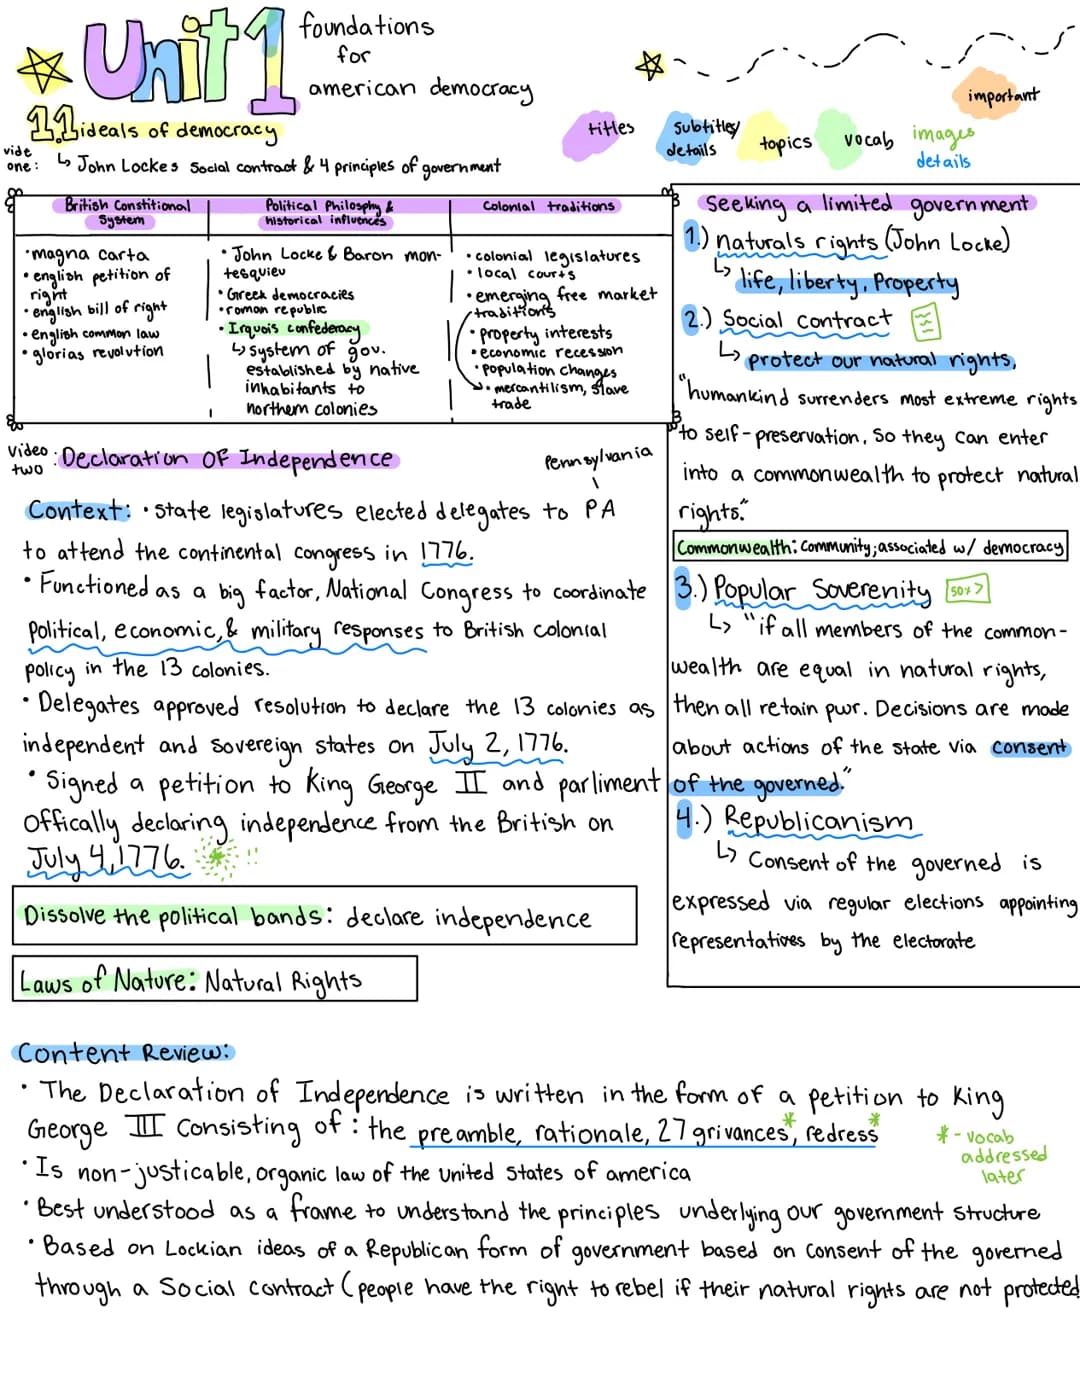 Unit 1
foundations
for
american democracy
1.1 ideals of democracy
vide
one: ↳ John Lockes Social contract & 4 principles of government
titles
Subtitles/
details
topics
vocab
images
details
important
British Constitional
System
• magna carta
• english petition of
right
• english bill of right
• english common law
• glorias revolution
Political Philosphy &
historical influences
• John Locke & Baron mon-
tesquieu
• Greek democracies
• roman republic
• Irquois confederacy
↳ system of gov.
established by native
inhabitants to
northern colonies
Colonial traditions
• colonial legislatures
• local courts
• emerging free market
traditions
• property interests
• economic recession
• population changes
• mercantilism, slave
trade
Seeking a limited government
1.) naturals rights (John Locke)
↳ life, liberty, Property
2.) Social Contract
↳ protect our natural rights,
"humankind surrenders most extreme rights
to self-preservation, So they can enter
into a commonwealth to protect natural
rights."
Commonwealth: Community; associated w/ democracy
3.) Popular Soverenity 50%>
↳ "if all members of the common-
wealth are equal in natural rights,
then all retain pwr. Decisions are made
about actions of the state via consent
of the governed."
4.) Republicanism
↳ Consent of the governed is
expressed via regular elections appointing
representatives by the electorate
Video
two : Declaration Of Independence
Pennsylvania
Context: • state legislatures elected delegates to PA
to attend the continental congress in 1776.
• Functioned as a big factor, National Congress to coordinate
Political, economic, & military responses to British Colonial
policy in the 13 colonies.
• Delegates approved resolution to declare the 13 colonies as
independent and sovereign states on July 2, 1776.
• Signed a petition to King George II and parliment
offically declaring independence from the British on
July 4, 1776. !!
Dissolve the political bands: declare independence
Laws of Nature: Natural Rights
Content Review:
• The Declaration of Independence is written in the form of a petition to King
George III Consisting of: the preamble, rationale, 27 grivances*, redress*
* - vocab
addressed
later
• Is non-justicable, organic law of the united states of america
• Best understood as a frame to understand the principles underlying our government structure
• Based on Lockian ideas of a Republican form of government based on consent of the governed
through a Social contract (people have the right to rebel if their natural rights are not protected